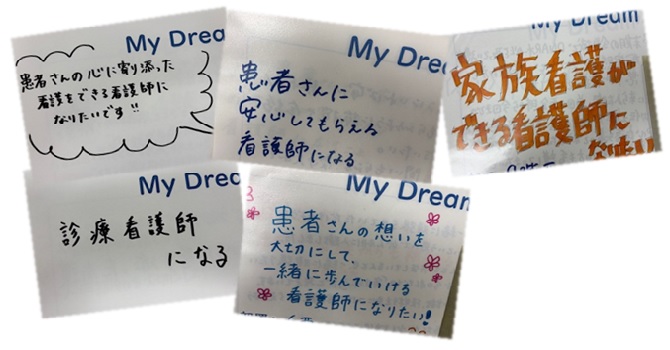 My Drea
患者さんの心に寄り添った
看護をできる看護師に
なりたいです!!
My Dre
患者さんに
安心してもらえる
看護師になる
My Dream
家族看護が
できる看護師に
なりたい
My Drea
診療看護師
になる
My Dream
患者さんの想いを
大切にして、
一緒に歩んでいける
看護師になりたい!